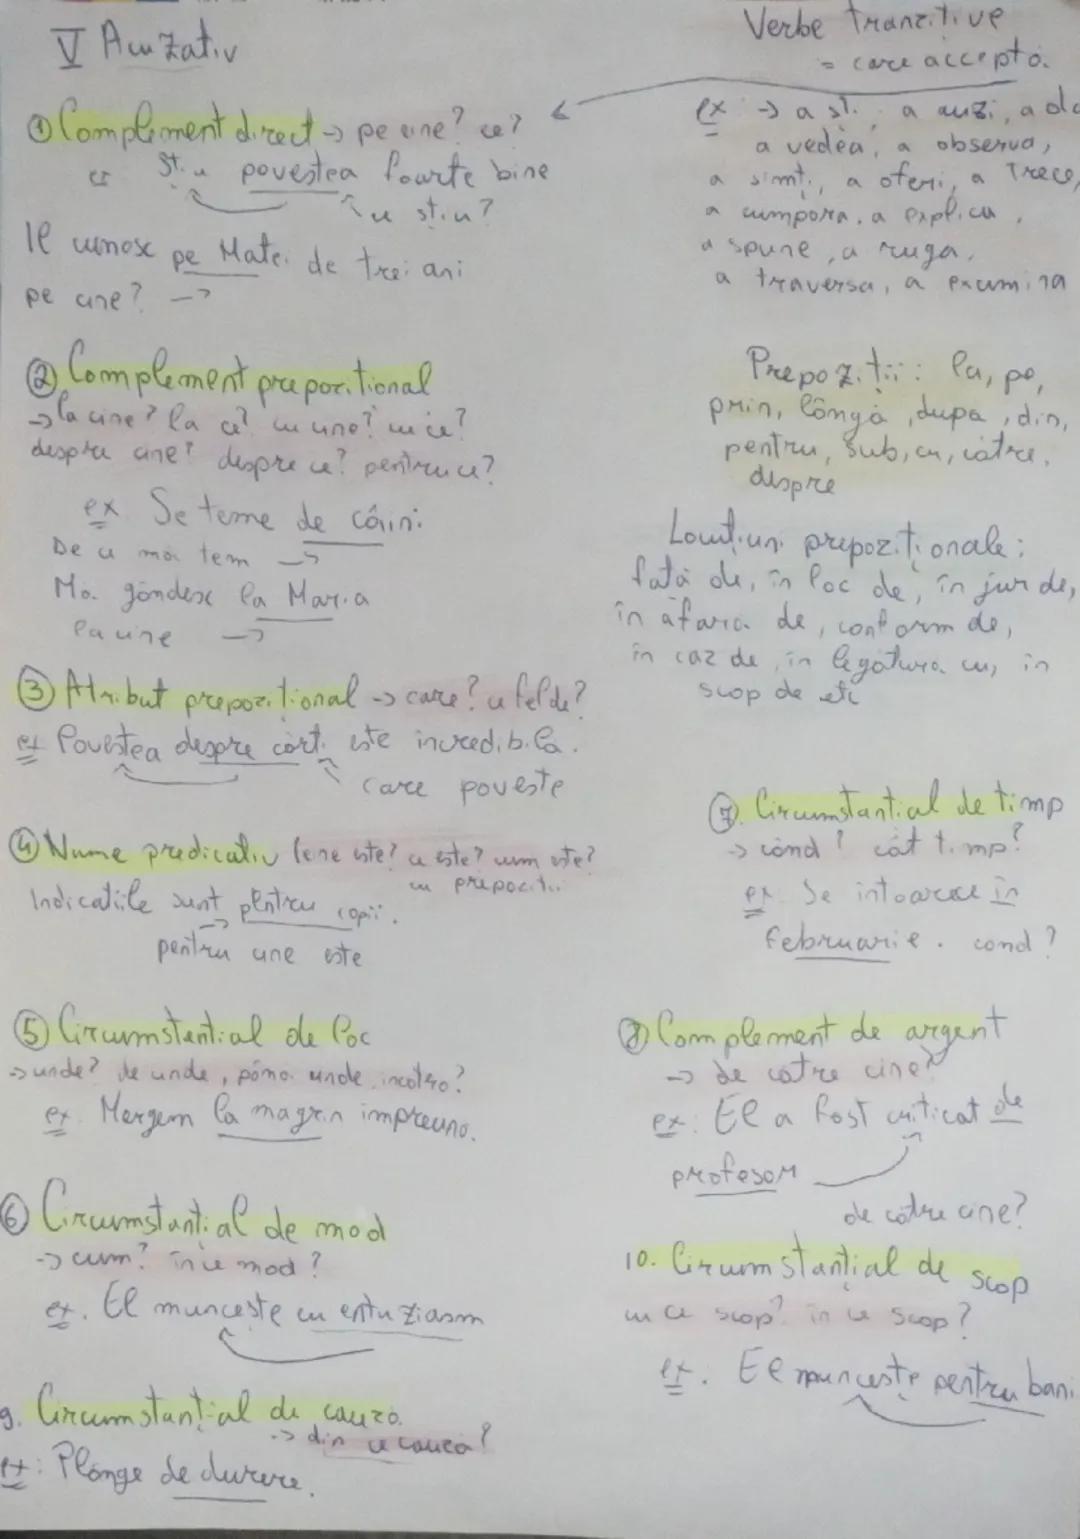 V Acuzativ
① Complement direct → pe cine? ce?
ex Știu povestea foarte bine
ce știu?
Îl cunosc pe Matei de trei ani
pe cine? →
Verbe tranzitive
= care acceptă.
ex → a ști, a auzi, a da
a vedea, a observa,
a simți, a oferi, a trece,
a cumpăra, a explica,
a spune, a ruga,
a traversa, a examina
② Complement prepozițional
→ la cine? la ce? cu cine? cu ce?
despre cine? despre ce? pentru ce?
ex Se teme de câini.
De ce mă tem →
Mă gândesc la Maria
la cine →
Prepoziții: la, pe,
prin, lângă, dupa, din,
pentru, sub, cu, către,
despre
Locuțiuni prepoziționale:
față de, în loc de, în jur de,
în afara de, conform de,
în caz de, în legătura cu, în
scop de etc
③ Atribut prepozițional → care? ce fel de?
ex Povestea despre cărți este incredibila.
care poveste
④ Nume predicativ (cine este? ce este? cum este?
cu prepoziții
Indicatiile sunt pentru copii.
pentru cine este
⑤ Circumstanțial de loc
→ unde? de unde, până unde, încotro?
ex Mergem la magazin împreună.
⑥ Circumstanțial de mod
→ cum? în ce mod?
ex. El muncește cu entuziasm
9. Circumstanțial de cauză
→ din ce cauză?
ex: Plânge de durere.
⑦. Circumstanțial de timp
→ când? cât timp?
ex Se intoarce în
februarie. când?
⑧ Complement de argent
→ de către cine?
ex: El a fost criticat de
profesor
de către cine?
10. Circumstanțial de scop
cu ce scop? în ce scop?
ex. El muncește pentru bani